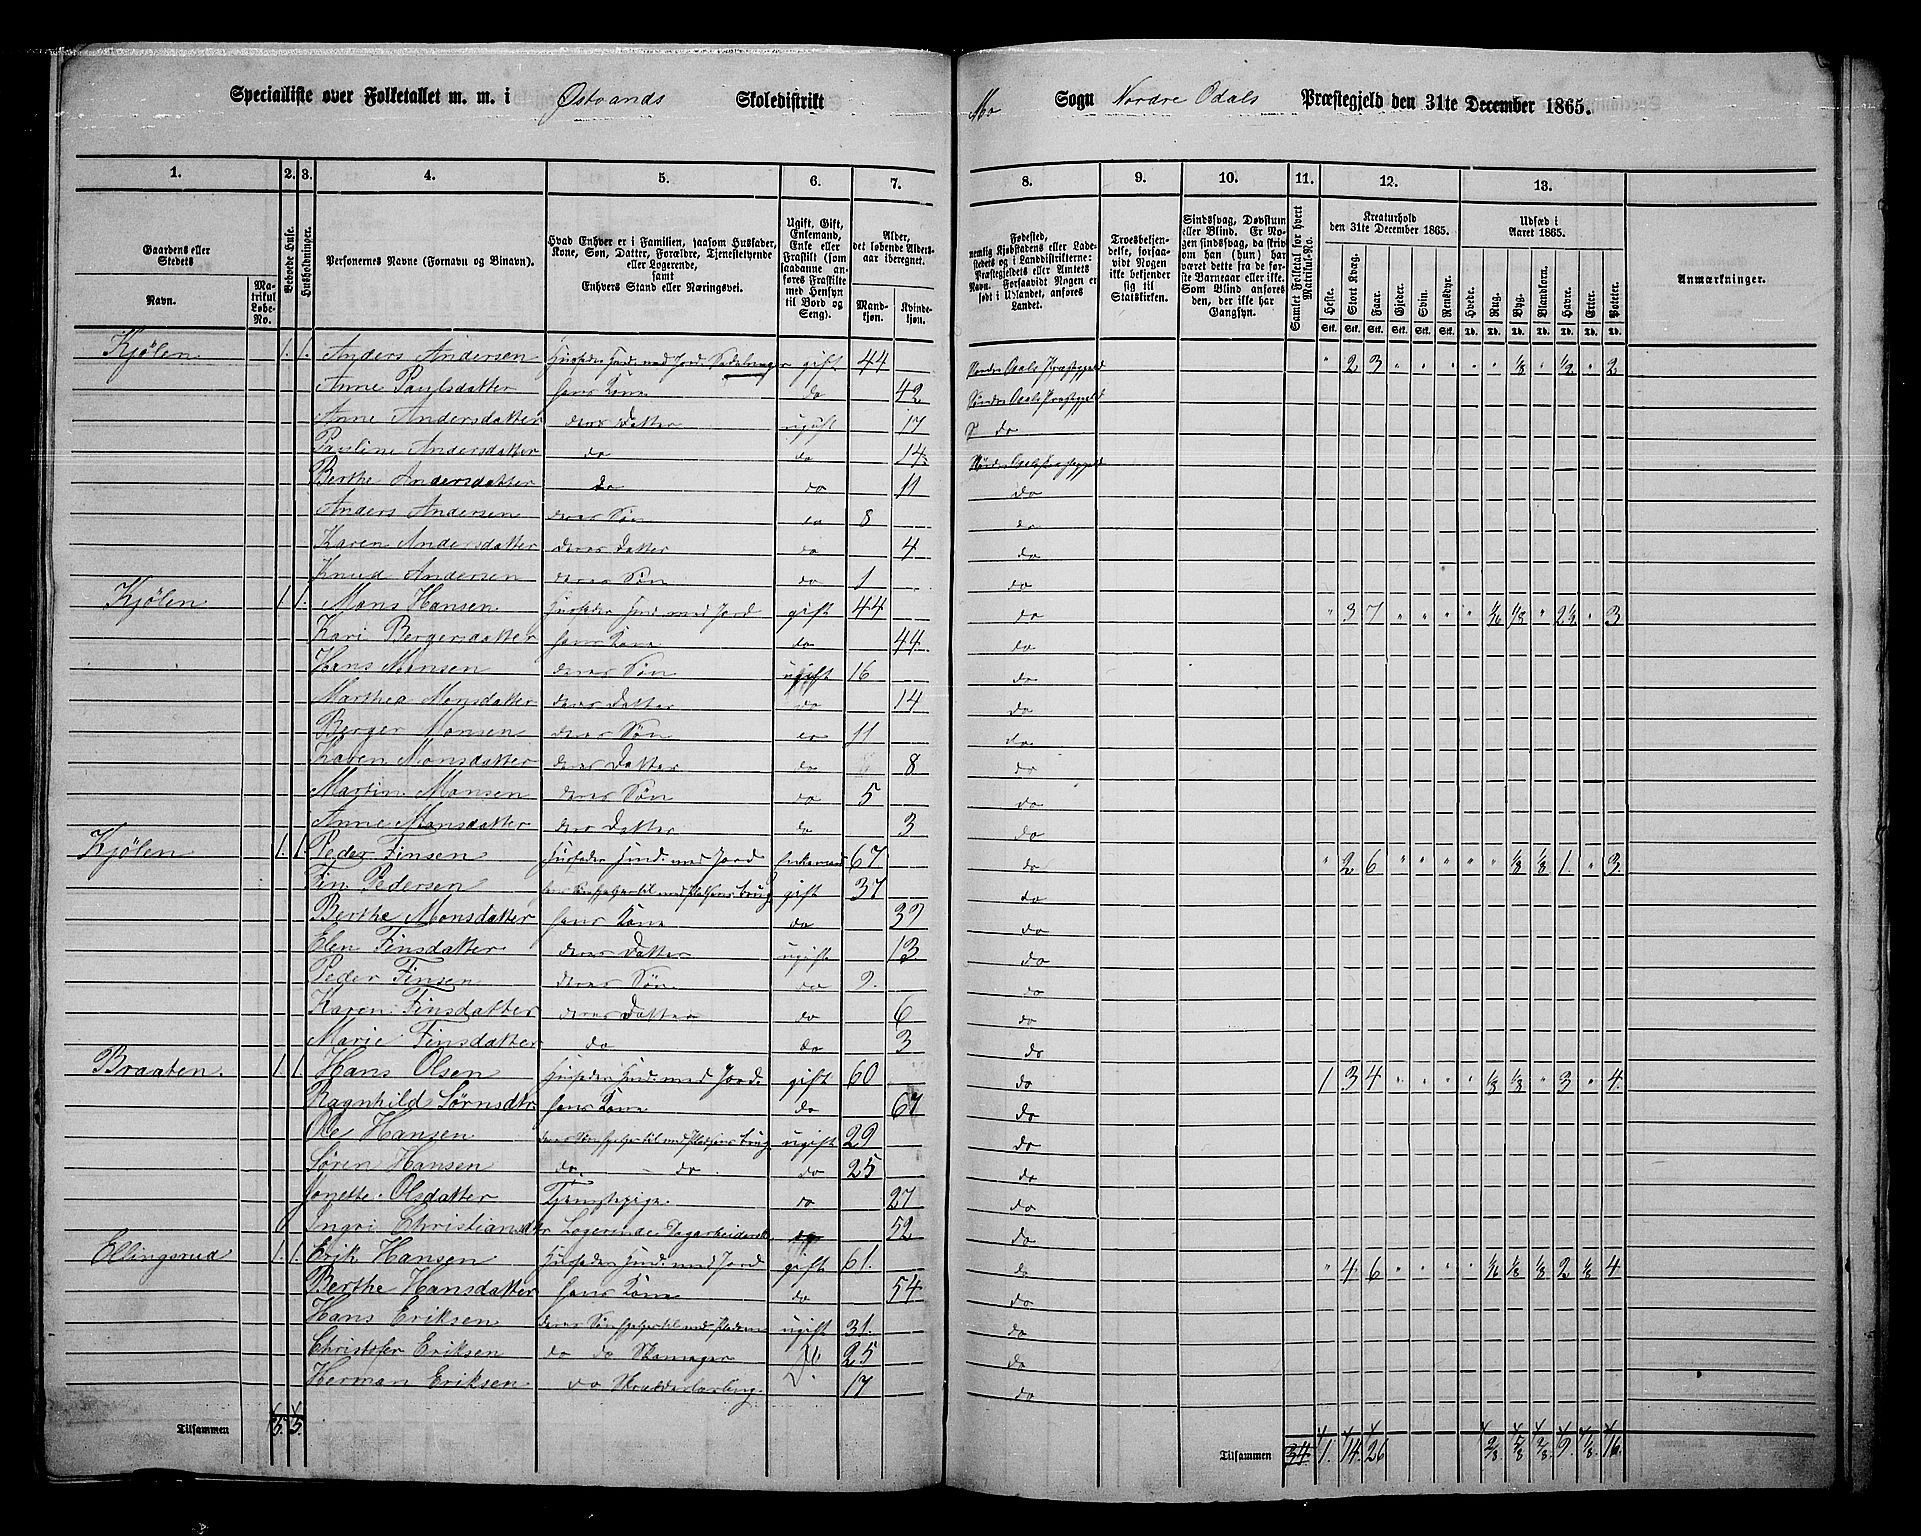 Specialliste over Folketallet m. m. i Østvands Skoledistrikt Mo Sogn Nordre Odals Præstegjeld den 31te December 1865.
1. 2. 3. 4. 5. 6. 7. 8. 9. 10. 11. 12. 13.
Gaardens eller Stedets
Navn.
Matrikul Løbe-No.
Beboede Huse.
Husholdninger.
Personernes Navne (Fornavn og Binavn).
Hvad Enhver er i Familien, saasom Husfader, Kone, Søn, Datter, Forældre, Tjenestetyende eller Logerende, samt Enhvers Stand eller Næringsvei.
Ugift, Gift, Enkemand, Enke eller Fraskilt (som saadanne anføres Fraskilte med Hensyn til Bord og Seng).
Alder, det løbende Alders-aar iberegnet.
Mandkjøn. Kvindekjøn.
Fødested, nemlig Kjøbstadens eller Ladestedets og i Landdistrikterne: Præstegjeldets eller Amtets Navn. Forsaavidt Nogen er født i Udlandet, anføres Landet.
Troesbekjendelse, forsaavidt Nogen ikke bekjender sig til Statskirken.
Sindssvag, Døvstum eller Blind. Er Nogen sindssvag, da skrives om han (hun) har været dette fra de første Barneaar eller ikke. Som Blind anføres den, der ikke har Gangsyn.
Samlet Folketal for hvert Matrikul-No.
Kreaturhold den 31te December 1865.
Heste. Stort Kvæg. Faar. Gjeder. Svin. Rensdyr.
Udsæd i Aaret 1865.
Hvede. Rug. Byg. Blandkorn. Havre. Erter. Poteter.
Anmærkninger.
Kjølen 1. 1. Anders Andersen Husfader Husm. med Jord Sadelmager gift 44 Nordre Odals Præstegjeld " 2 3 " " " " " 1/8 " 1/2 " 2
Anne Paulsdatter hans Kone do 42 Søndre Odals Præstegjeld
Anne Andersdatter deres Datter ugift 17 S do
Pauline Andersdatter do do 14 Nordre Odals Præstegjeld
Berthe Andersdatter do do 11 do
Anders Andersen deres Søn do 8 do
Karen Andersdatter deres Datter do 4 do
Knud Andersen deres Søn do 1 do
Kjølen 1. 1. Mons Hansen Husfader Husm. med Jord gift 44 do " 3 7 " " " " 1/16 1/8 " 2 1/2 " 3
Kari Bergersdatter hans Kone do 44 do
Hans Monsen deres Søn ugift 16 do
Marthea Monsdatter deres Datter do 14 do
Berger Monsen deres Søn do 11 do
Karen Monsdatter deres Datter do 8 do
Martin Monsen deres Søn do 5 do
Anne Monsdatter deres Datter do 3 do
Kjølen 1. 1. Peder Finsen Husfader Husm. med Jord Enkemand 67 do " 2 6 " " " " " 1/8 1/8 1 " 3
Fin Pedersen hans Søn hjelper til med Pladsens brug gift 37 do
Berthe Monsdatter hans Kone do do
Elen Finsdatter deres Datter ugift 13 do
Peder Finsen deres Søn do 9. do
Karen Finsdatter deres Datter do 6 do
Marie Finsdatter do do 3 do
Braaten. 1. 1. Hans Olsen Husfader Husm. med Jord. gift 60 do 1 3 4 " " " " 1/8 1/8 " 3 " 4
Ragnhild Sørnsdtr. hans Kone do 67 do
Ole Hansen deres Søn hjelper til med Pladsens brug ugift 29 do
Søren Hansen do do do 25 do
Jonette Olsdatter Tjenstepige. do 27 do
Ingri Christiansdtr Logerende Dagarbeiderske do 52 do
Ellingsrud 1. 1. Erik Hansen Husfader Husm. med Jord gift 61. do " 4 6 " " " " 1/16 1/8 1/8 2 1/8 4
Berthe Hansdatter hans Kone do 54 do
Hans Eriksen deres Søn hjelper til med Pladsen ugift 31. do
Christofer Eriksen do do Skomager 25 do
Herman Eriksen do Skrædderlærling. 17 do
Tilsammen 5. 5. Tilsammen 34. 1. 14. 26 2/8. 5/8 3/8. 9. 1/8. 16.